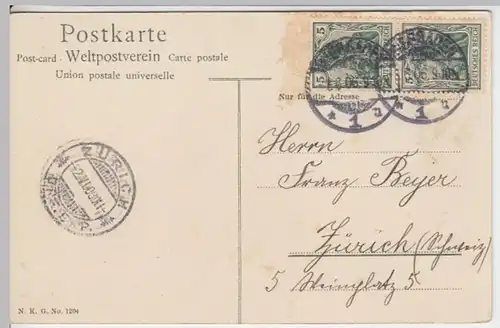 Postkarte
Post-card · Weltpostverein Carte postale
Union postale universelle
Nur für die Adresse
5 5
DEUTSCHES REICH
* 1 u * 1 u
ZÜRICH
BRF. EXP.
Herrn
Franz Beyer
Zürich (Schweiz)
5 Weinplatz 5
N. K. G. No. 1204